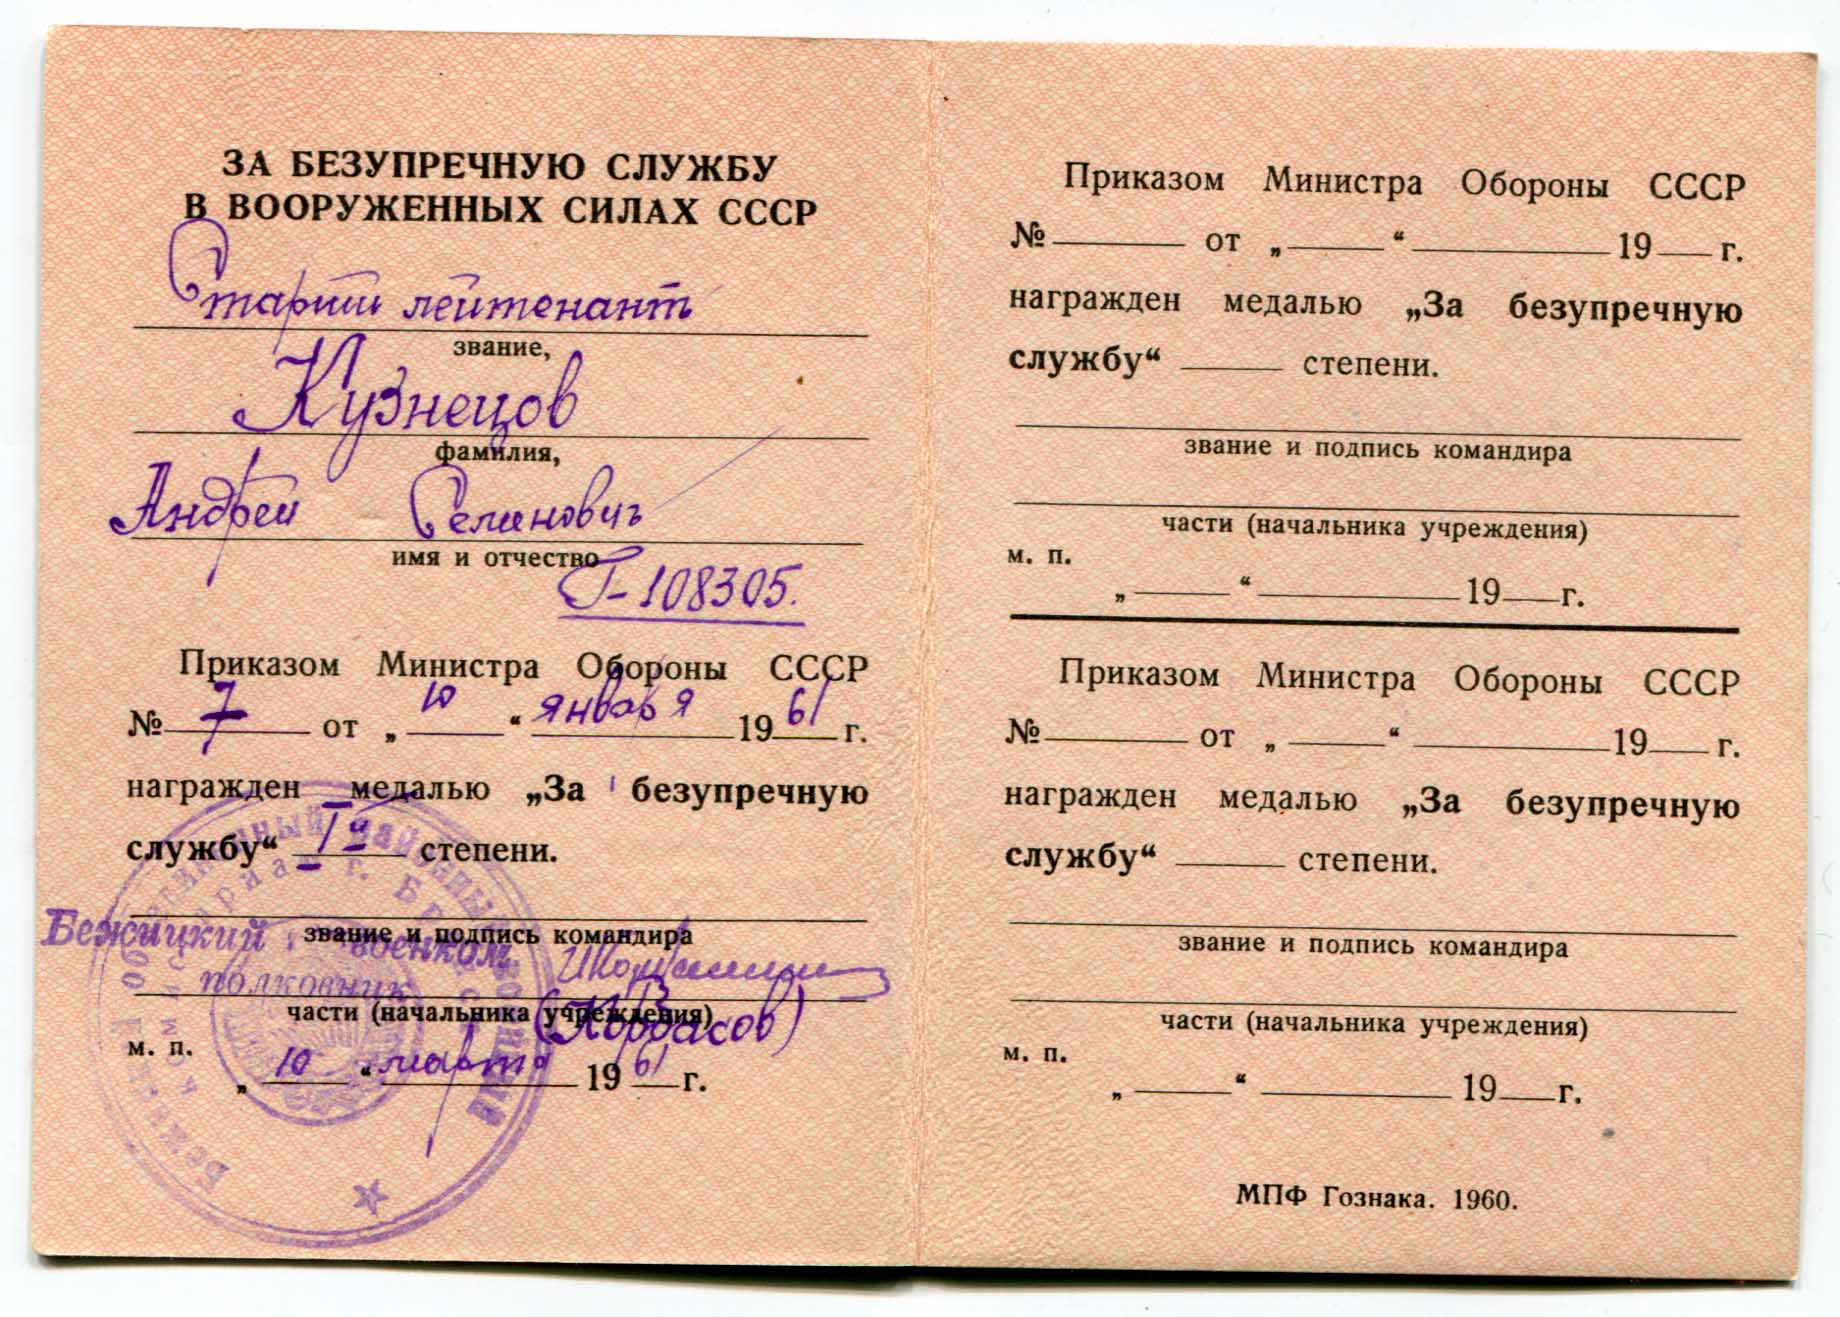 ЗА БЕЗУПРЕЧНУЮ СЛУЖБУ
В ВООРУЖЕННЫХ СИЛАХ СССР
Старший лейтенант
звание,
Кузнецов
фамилия,
Андрей Семенович
имя и отчество
Г-108305.
Приказом Министра Обороны СССР
№ 7 от „ 10 “ января 19 61 г.
награжден медалью „За безупречную
службу“ Iй степени.
звание и подпись командира
Бежицкий военком
полковник
части (начальника учреждения)
м. п.
„ 10 “ марта 19 61 г.
Приказом Министра Обороны СССР
№ от „ “ 19 г.
награжден медалью „За безупречную
службу“ степени.
звание и подпись командира
части (начальника учреждения)
м. п.
„ “ 19 г.
Приказом Министра Обороны СССР
№ от „ “ 19 г.
награжден медалью „За безупречную
службу“ степени.
звание и подпись командира
части (начальника учреждения)
м. п.
„ “ 19 г.
МПФ Гознака. 1960.